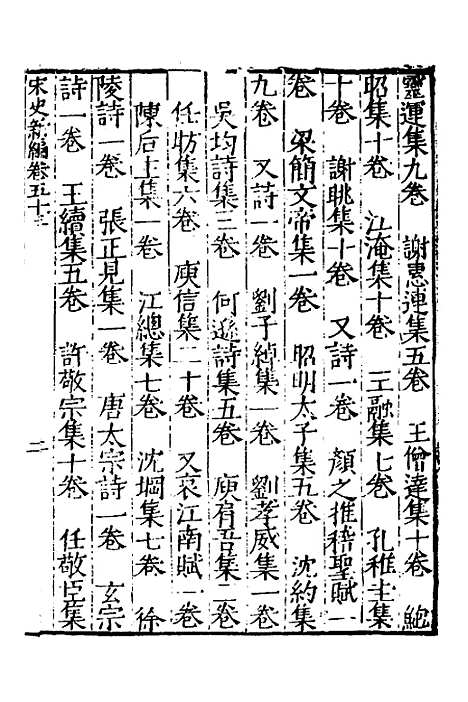 靈運集九卷 謝惠連集五卷 王僧達集十卷 鮑
昭集十卷 江淹集十卷 王融集七卷 孔稚圭集
十卷 謝眺集十卷 又詩一卷 顏之推稽聖賦一
卷 梁簡文帝集一卷 昭明太子集五卷 沈約集
九卷 又詩一卷 劉子綽集一卷 劉孝威集一卷
吳均詩集三卷 何遜詩集五卷 庾肩吾集二卷
任昉集六卷 庾信集二十卷 又哀江南賦一卷
陳后主集一卷 江總集七卷 沈炯集七卷 徐
陵詩一卷 張正見集一卷 唐太宗詩一卷 玄宗
詩一卷 王績集五卷 許敬宗集十卷 任敬臣集
宋史新編卷五十 二